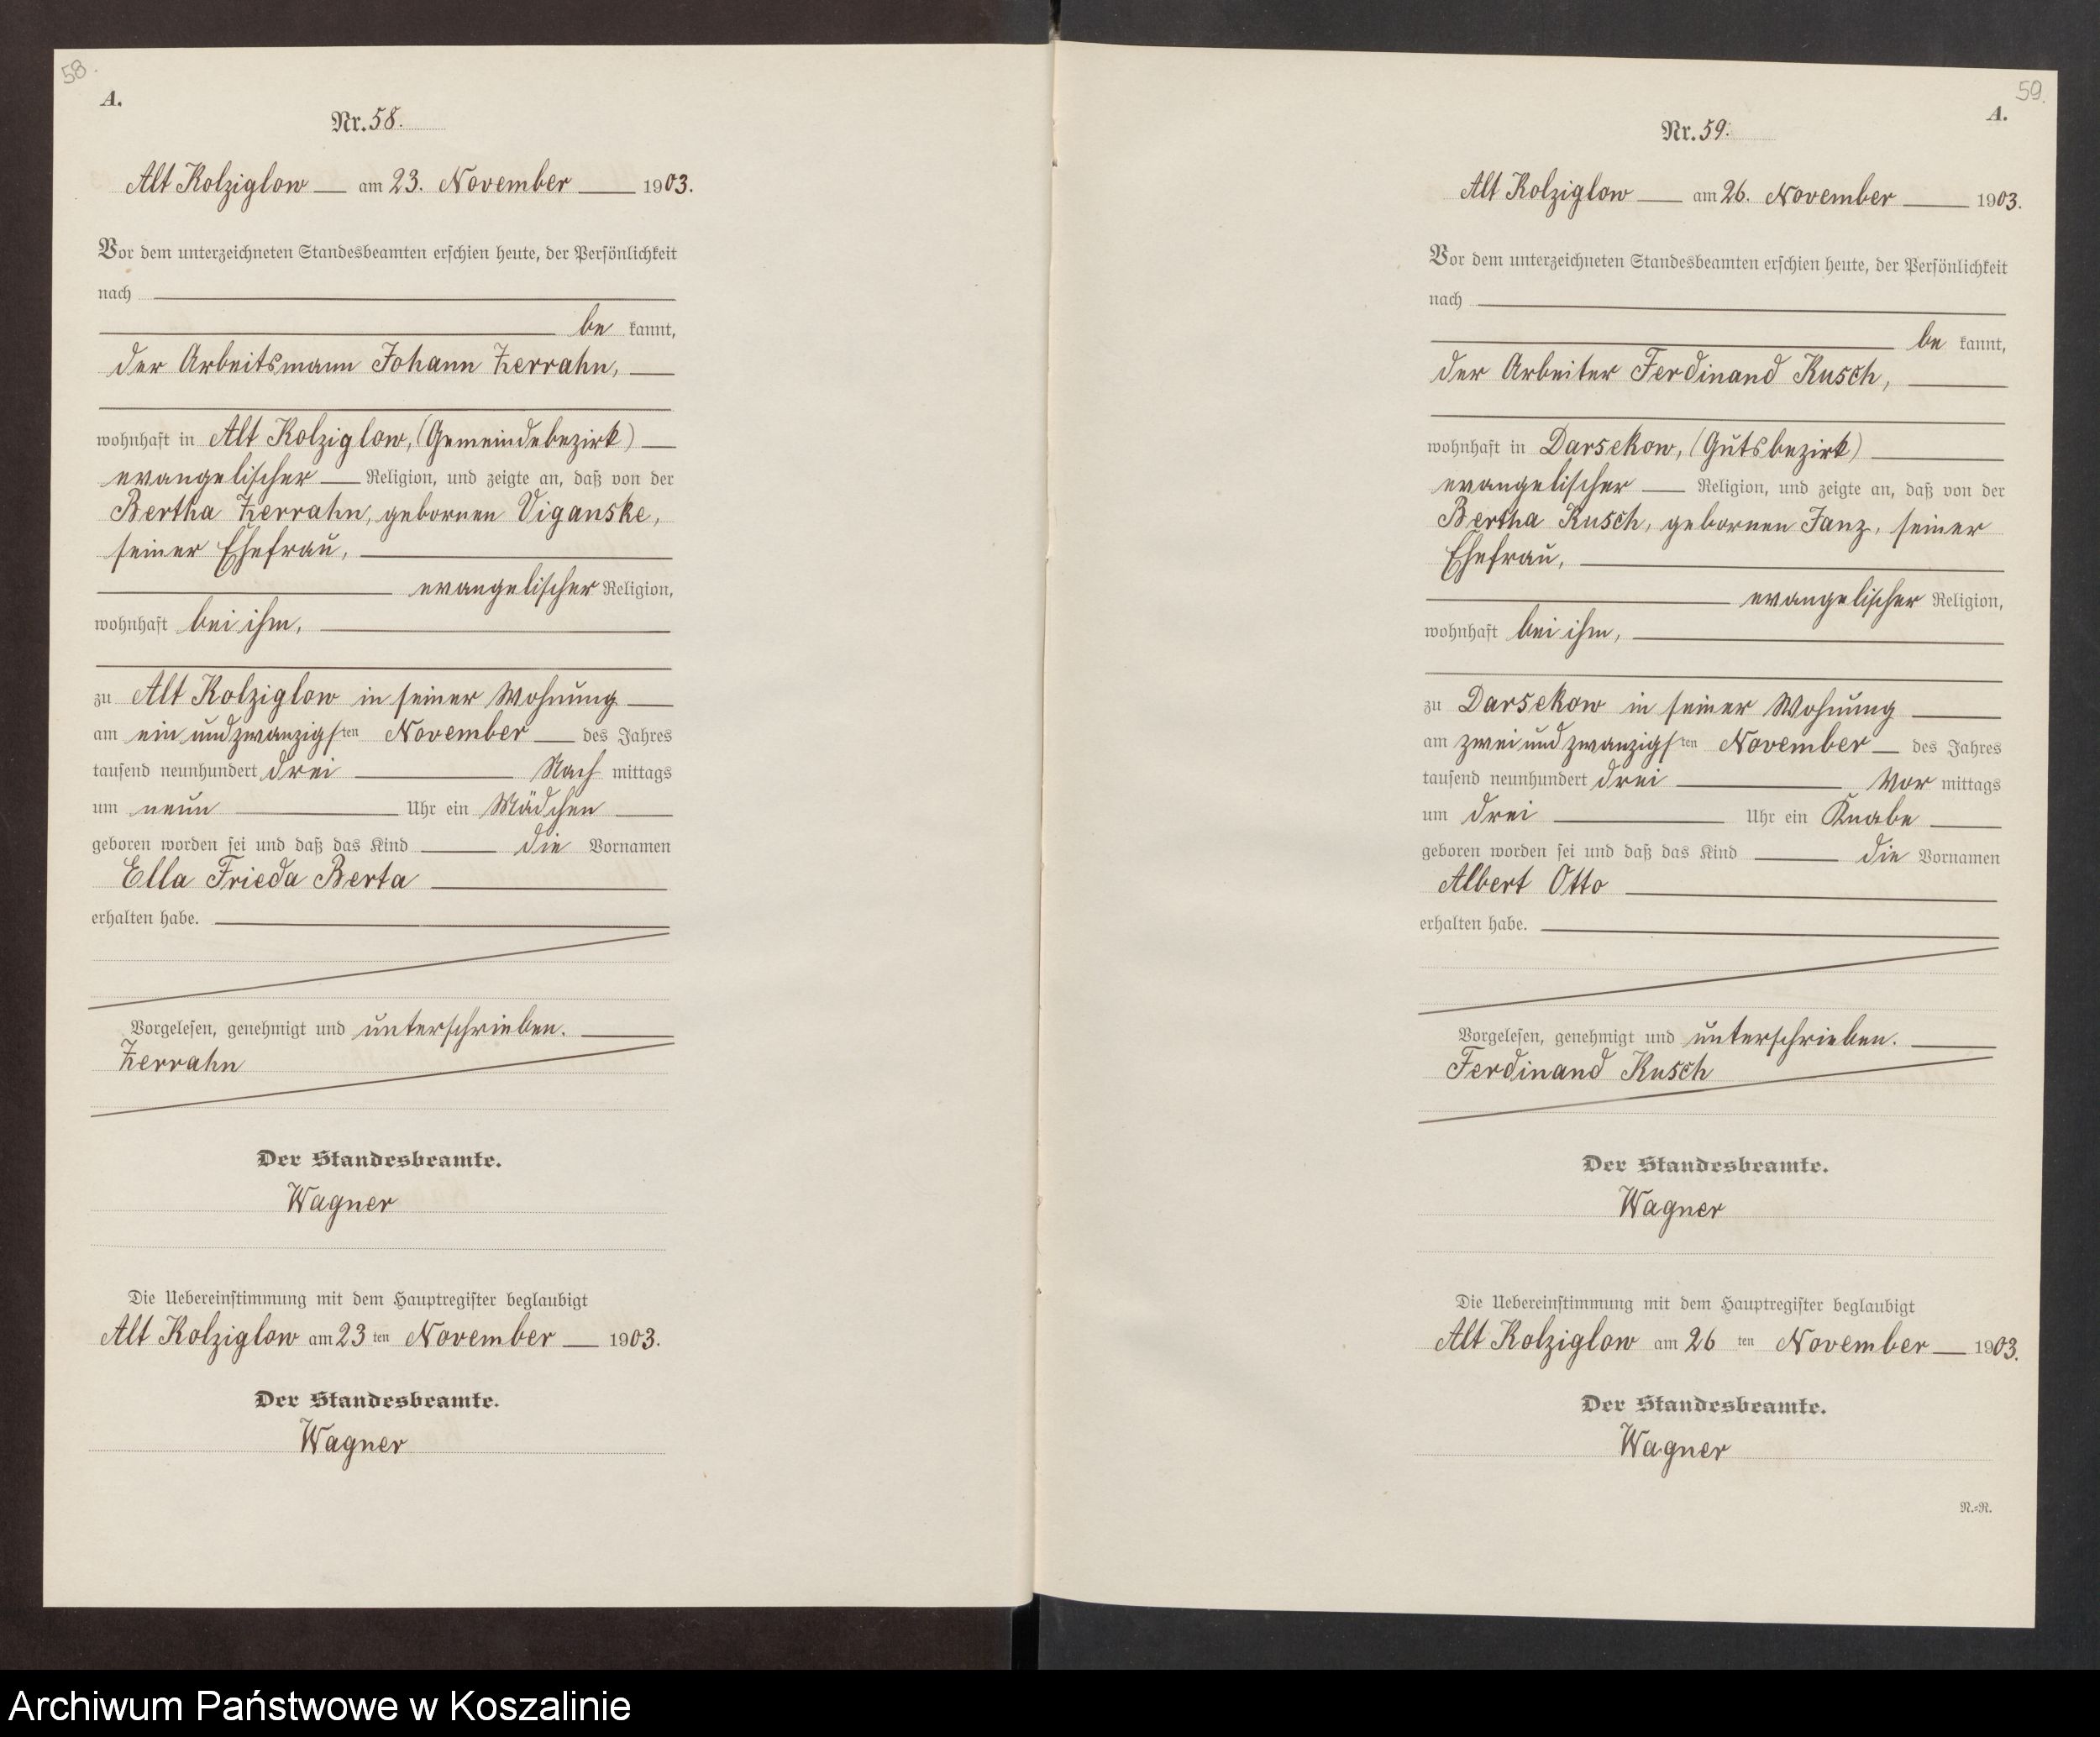 58.
A.
Nr. 58.
Alt Kolziglow am 23. November 1903.
Vor dem unterzeichneten Standesbeamten erschien heute, der Persönlichkeit
nach
be kannt,
der Arbeitsmann Johann Zerrahn,
wohnhaft in Alt Kolziglow, (Gemeindebezirk)
evangelischer Religion, und zeigte an, daß von der
Bertha Zerrahn, gebornen Viganske,
seiner Ehefrau,
evangelischer Religion,
wohnhaft bei ihm,
zu Alt Kolziglow in seiner Wohnung
am ein und zwanzigsten November des Jahres
tausend neunhundert drei Nach mittags
um neun Uhr ein Mädchen
geboren worden sei und daß das Kind die Vornamen
Ella Frieda Berta
erhalten habe.
Vorgelesen, genehmigt und unterschrieben.
Zerrahn
Der Standesbeamte.
Wagner
Die Uebereinstimmung mit dem Hauptregister beglaubigt
Alt Kolziglow am 23 ten November 1903.
Der Standesbeamte.
Wagner
59.
A.
Nr. 59.
Alt Kolziglow am 26. November 1903.
Vor dem unterzeichneten Standesbeamten erschien heute, der Persönlichkeit
nach
be kannt,
der Arbeiter Ferdinand Kusch,
wohnhaft in Darsekow, (Gutsbezirk)
evangelischer Religion, und zeigte an, daß von der
Bertha Kusch, gebornen Janz, seiner
Ehefrau,
evangelischer Religion,
wohnhaft bei ihm,
zu Darsekow in seiner Wohnung
am zwei und zwanzigsten November des Jahres
tausend neunhundert drei Vor mittags
um drei Uhr ein Knabe
geboren worden sei und daß das Kind die Vornamen
Albert Otto
erhalten habe.
Vorgelesen, genehmigt und unterschrieben.
Ferdinand Kusch
Der Standesbeamte.
Wagner
Die Uebereinstimmung mit dem Hauptregister beglaubigt
Alt Kolziglow am 26 ten November 1903.
Der Standesbeamte.
Wagner
N.=R.
Archiwum Państwowe w Koszalinie